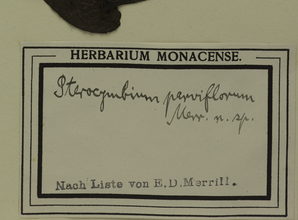 HERBARIUM MONACENSE.
Pterocymbium parviflorum
Merr. n. sp.
Nach Liste von E.D.Merrill.